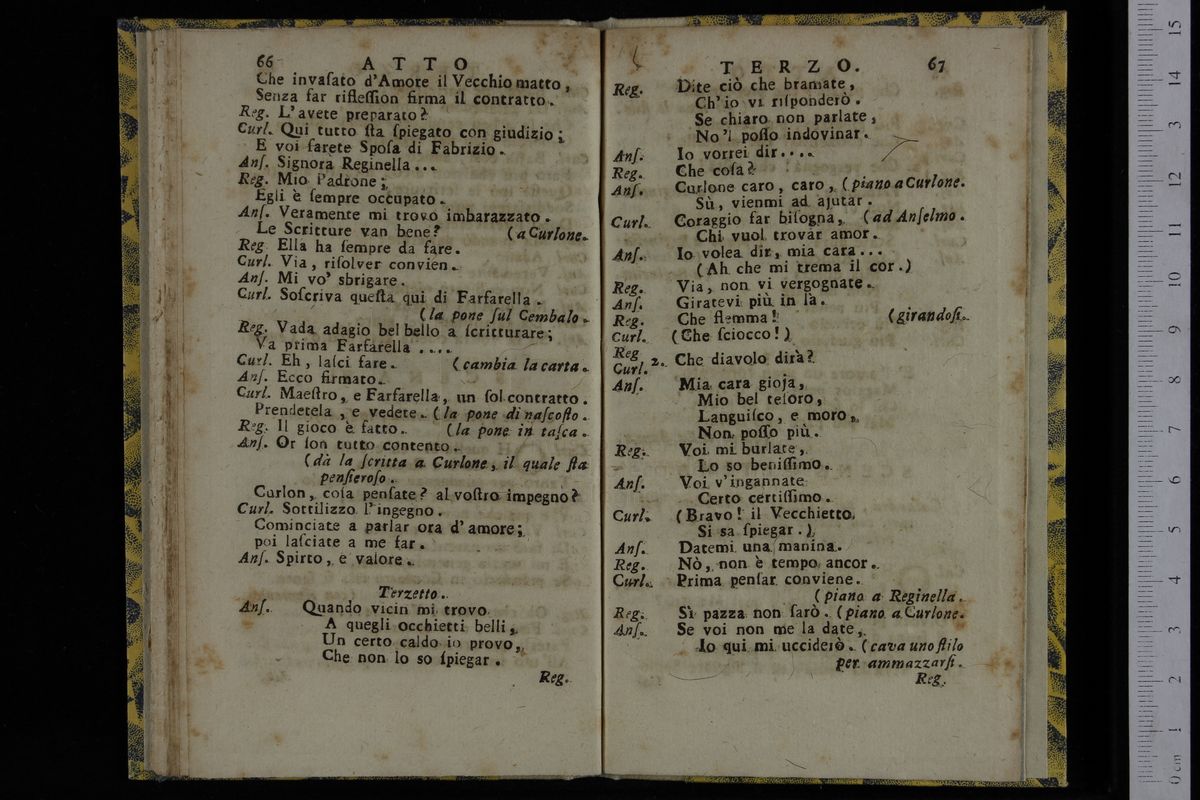 66 ATTO
Che invaſato d'Amore il Vecchio matto,
Senza far rifleſſion firma il contratto.
Reg. L'avete preparato?
Curl. Qui tutto ſta ſpiegato con giudizio;
E voi ſarete Spoſa di Fabrizio.
Anſ. Signora Reginella...
Reg. Mio Padrone;
Egli è ſempre occupato.
Anſ. Veramente mi trovo imbarazzato.
Le Scritture van bene? (a Curlone.
Reg. Ella ha ſempre da fare.
Curl. Via, riſolver convien.
Anſ. Mi vo' sbrigare.
Curl. Soſcriva queſta qui di Farfarella.
(la pone ſul Cembalo.
Reg. Vada adagio bel bello a ſcritturare;
Va prima Farfarella ....
Curl. Eh, laſci fare. (cambia la carta.
Anſ. Ecco firmato.
Curl. Maeſtro, e Farfarella, un ſol contratto.
Prendetela, e vedete. (la pone di naſcoſto.
Reg. Il gioco è fatto. (la pone in taſca.
Anſ. Or ſon tutto contento.
(dà la ſcritta a Curlone, il quale ſta
penſieroſo.
Curlon, coſa penſate? al voſtro impegno?
Curl. Sottilizzo l'ingegno.
Cominciate a parlar ora d'amore;
poi laſciate a me far.
Anſ. Spirto, e valore.
Terzetto.
Anſ. Quando vicin mi trovo
A quegli occhietti belli,
Un certo caldo io provo,
Che non lo so ſpiegar.
Reg.
TERZO. 67
Reg. Dite ciò che bramate,
Ch'io vi riſponderò.
Se chiaro non parlate,
No'l poſſo indovinar.
Anſ. Io vorrei dir....
Reg. Che coſa?
Anſ. Curlone caro, caro, (piano a Curlone.
Sù, vienmi ad ajutar.
Curl. Coraggio far biſogna, (ad Anſelmo.
Chi vuol trovar amor.
Anſ. Io volea dir, mia cara...
(Ah che mi trema il cor.)
Reg. Via, non vi vergognate.
Anſ. Giratevi più in là.
Reg. Che flemma! (girandoſi.
Curl. (Che ſciocco!)
Reg
Curl. 2. Che diavolo dirà?
Anſ. Mia cara gioja,
Mio bel teſoro,
Languiſco, e moro,
Non poſſo più.
Reg. Voi mi burlate,
Lo so beniſſimo.
Anſ. Voi v'ingannate
Certo certiſſimo.
Curl. (Bravo! il Vecchietto
Si sa ſpiegar.)
Anſ. Datemi una manina.
Reg. Nò, non è tempo ancor.
Curl. Prima penſar conviene.
(piano a Reginella.
Reg. Sì pazza non ſarò. (piano a Curlone.
Anſ. Se voi non me la date,
Io qui mi ucciderò. (cava uno ſtilo
per ammazzarſi.
Reg.
0 cm 1 2 3 4 5 6 7 8 9 10 11 12 13 14 15